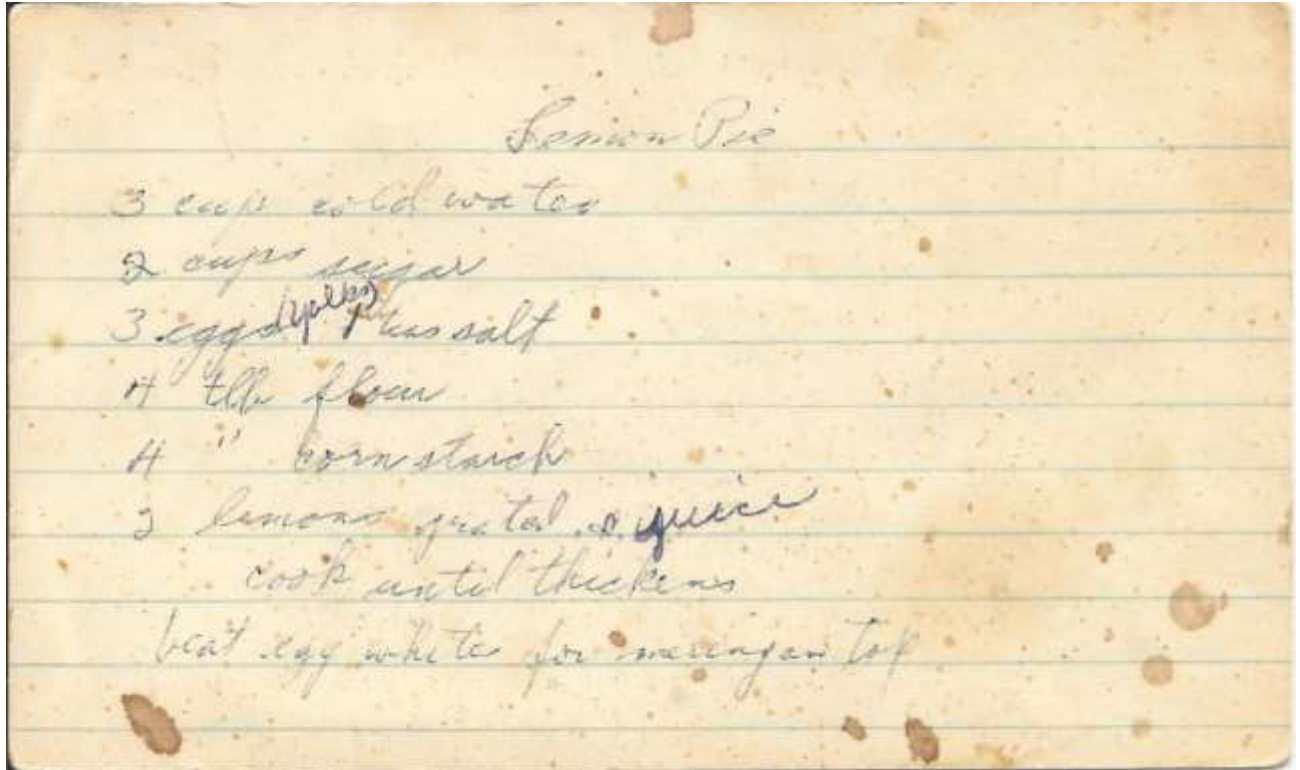 Lemon Pie
3 cups cold water
2 cups sugar
3 eggs (yolks) 1 teas salt
4 tbl flour
4 " cornstarch
2 lemons grated & juice
cook until thickens
beat egg white for meringan top